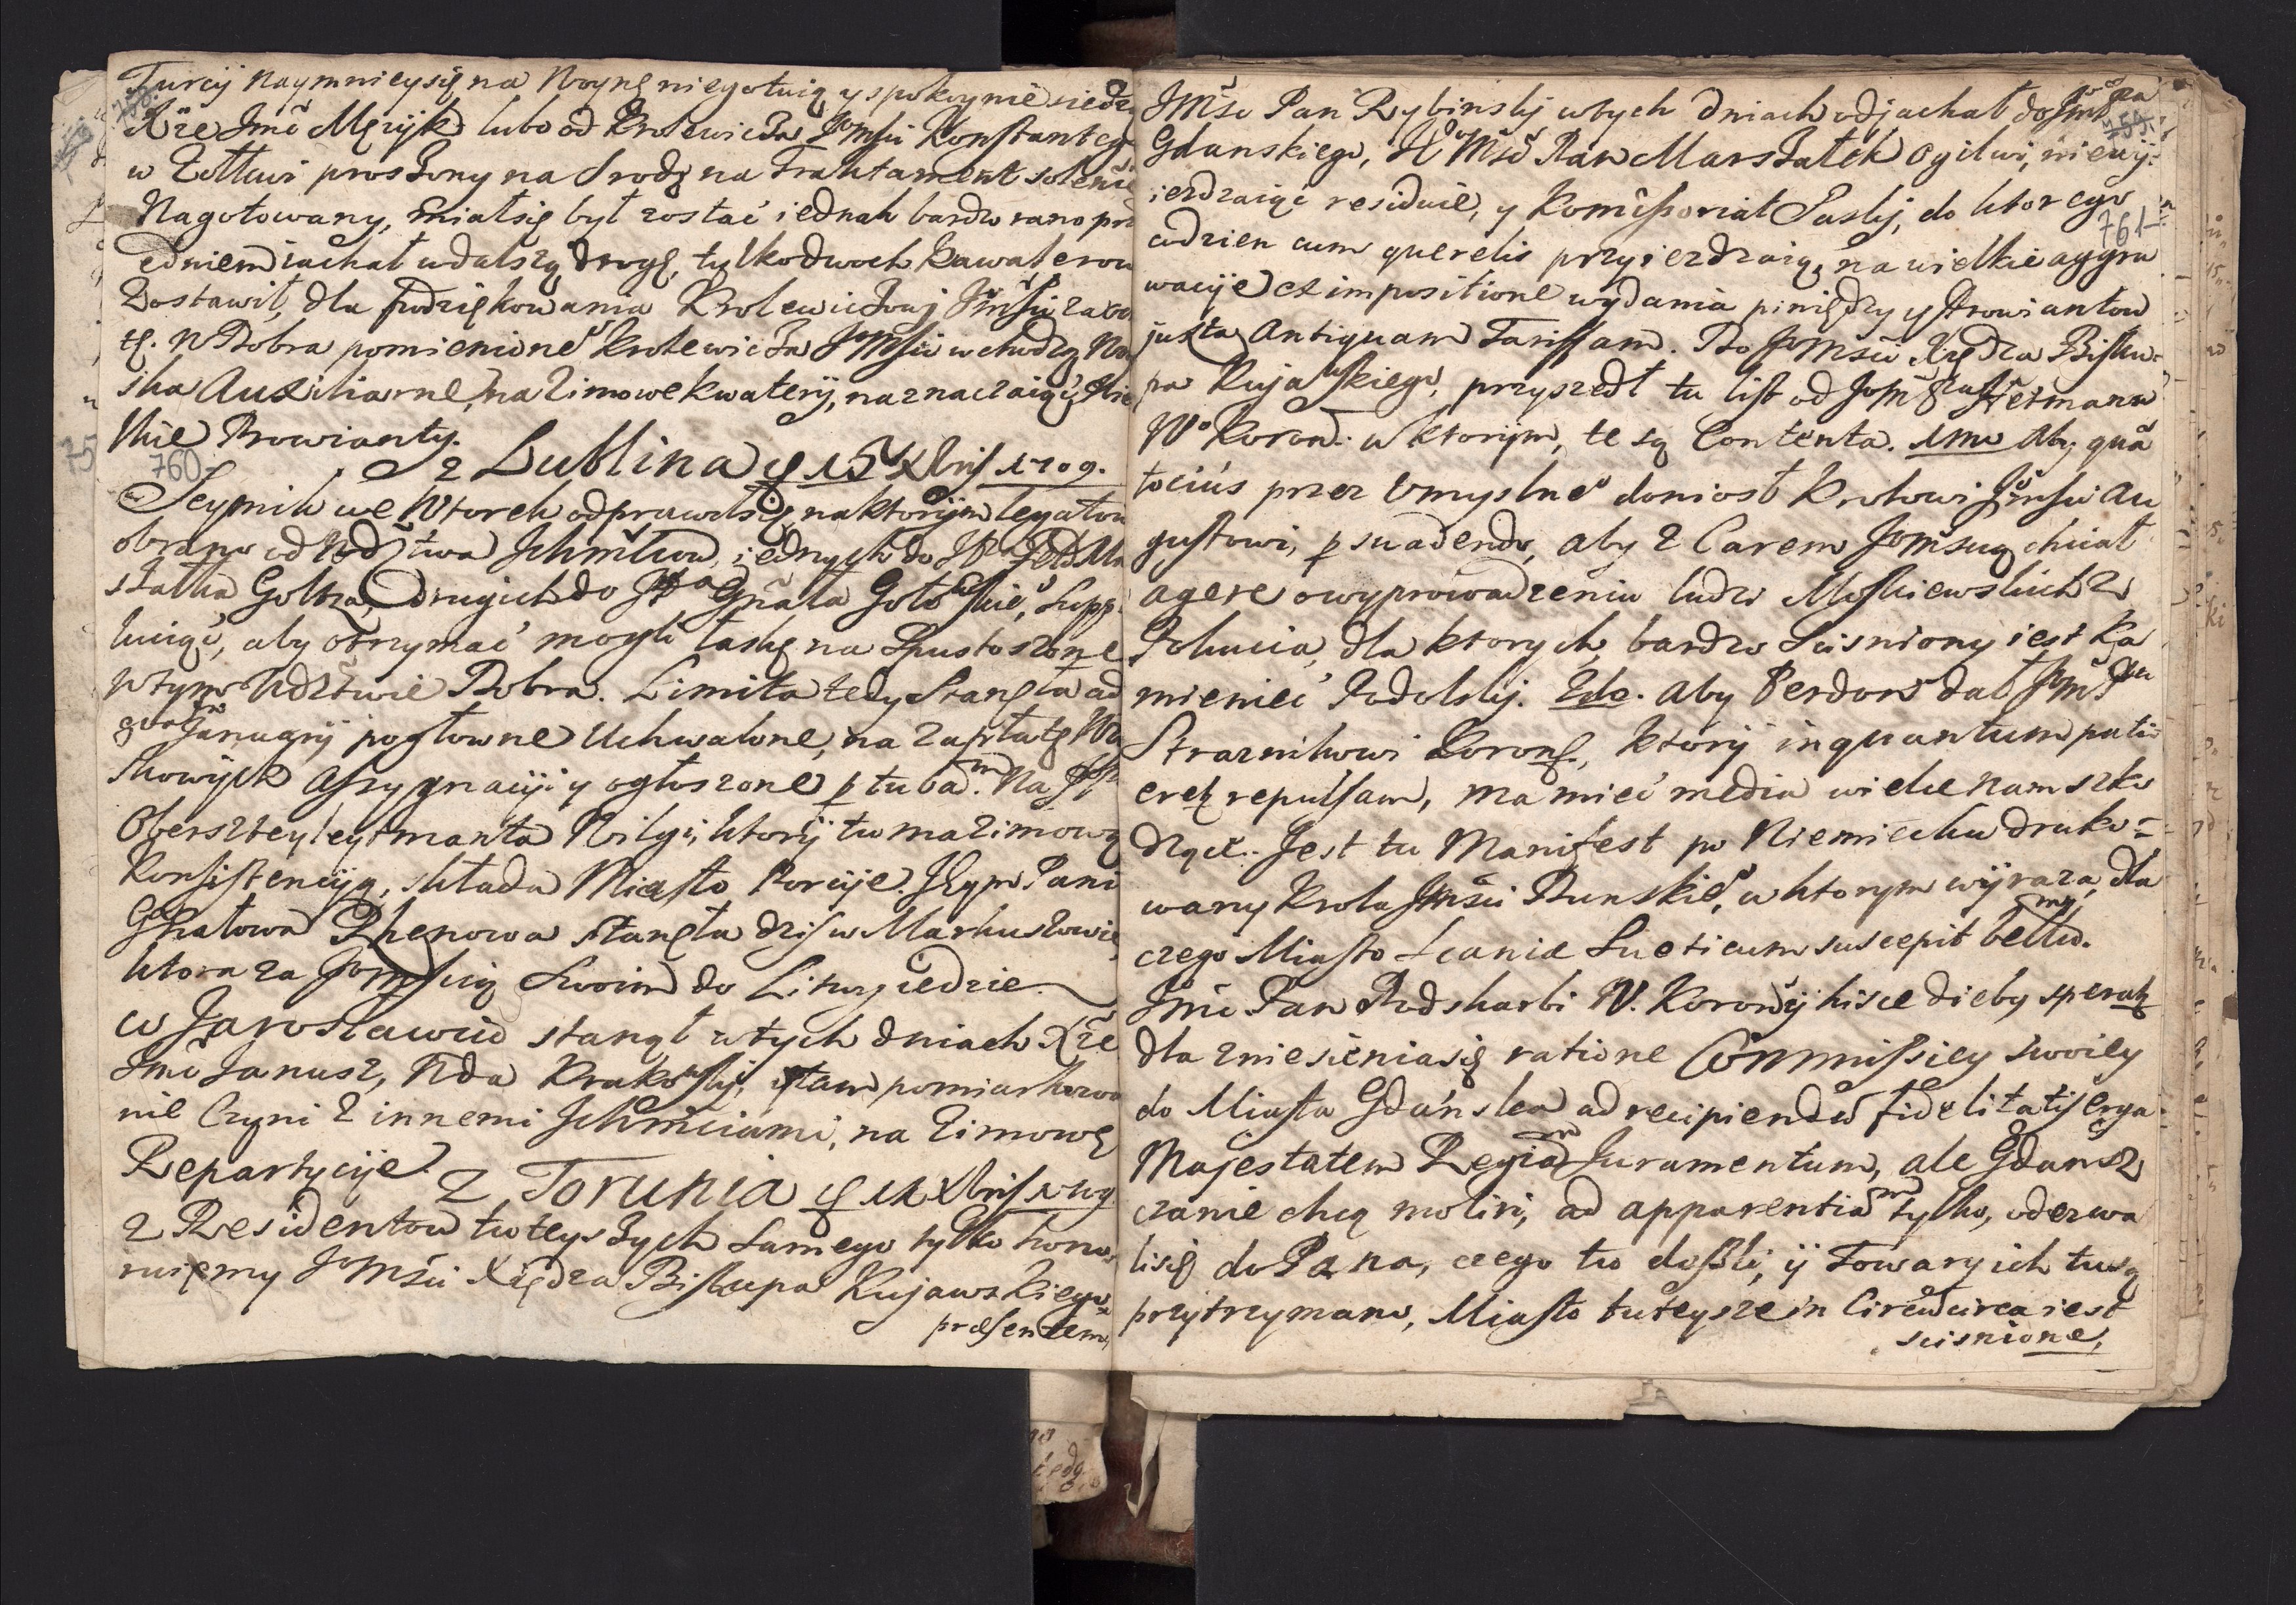 Turcÿ naymniey się na Woynę niegotuią y spokoynie siedz
758.
Xże Jmć Męzÿk lubo od Krolewicza Jomści Konstanteg
w Zołkwi proszony na Srodę na Traktament solenie
Nagotowany, miał się był zostać iednak bardzo rano prz
ed niem iachał w dalszą drogę, tylko dwoch Kawalerow
Zostawił, dla podziękowania Krolewiczowj Jmści za
tę. W Dobra pomienione Krolewicza Jomści wchodzą
ska Auxiliarne, na Zimowe kwaterÿ, naznaczaiąc
kie Prowianty.
760
Z Lublina d 15 Xbris 1709.
Seymik we Wtorek odprawił się na ktorÿm legatow
obrano od Wdztwa Ichmściow, iednych do
szałka Goltza, Drugich do Gnała Goło Supp
kuiąc, aby otrzymać mogli łaskę na Spustoszone
w tym Wdztwie Dobra. Limita tedy Stanęła ad
Januarÿ pogłowne Uchwalone, na Zapłatę
skowÿch Assygnacÿi y ogłoszone p tubam. Na
Obersztleytmanta Wilgi, ktorÿ tu ma Zimową
Konsistencÿą, składa Miasto Porcÿe. Jeym Pani
Gnałowa Rhenowa stanęła dziś w Markuszowie,
ktora za Jomścią Swoim do Litwy iedzie.
w Jarosławiu stanął w tych dniach Xże
Jmć Janusz, Wda Krakowskj, y tam pomiarkowa
nie Czyni z innemi Ichmściami, na Zimowę
Repartycÿe.
Z Torunia d Xbris
z Residentow tuteyszych Samego tylko hono
ruięmy Jomści Xiędza Biskupa Kujawskiego
præsentem,
JMść Pan Rybinskj w tych dniach odjachał do Jmć
759.
Gdanskiego, Mść Pan Marszałek Ogilwi, niewÿ
ieżdzaiąc residuie, y Komissoriat Ruskj, do ktorego
761
codzien cum querelis przyieżdzaią, na wielkie aggra
wacÿe et impositione wydania piniędzy y Prowiantow
juxta Antiquam Tariffam. Do Jomści Xiędza Bisku
pa Kujawskiego, przyszedł tu list od Jom Hetmana
Wo Koron: w ktorÿm, te są Contenta. 1mo Aby quā
tocius przez Umyslne doniosł Krolowi Jomści Au
gustowi, psuadendo, aby z Carem Jomscią chciał
agere o wyprowadzeniu ludzi Moskiewskich z
Pokucia, dla ktorych, bardzo Scisniony iest Ka
mieniec Podolskj. 2do. aby Perdon dał Jom
Straznikowi Koronę, ktorÿ inquantum pati
eretz repulsam, ma mieć media wielce nam szko
dzące. Jest tu Manifest po Niemiecku druko=
wany Krola Jmści Dunskie, w ktorym wÿraża, dla
czego Miasto Scanie Sueticum suscepit bellum.
Jmć Pan Podskarbi W. Koronÿ hisce diebg speratz
dla zniesienia się ratione Commissiey Swoiey
do Miasta Gdanska ad recipiendū fidelitatis erga
Majestatem Regiam Juramentum, ale Gdansz
czanie chcą moliri, ad apparentiam tylko, oderwa
li się do Pana, czego tu doszli, y Towary ich tu są
przytrzymano, Miasto tuteysze in Circūcirca iest
scisnione,